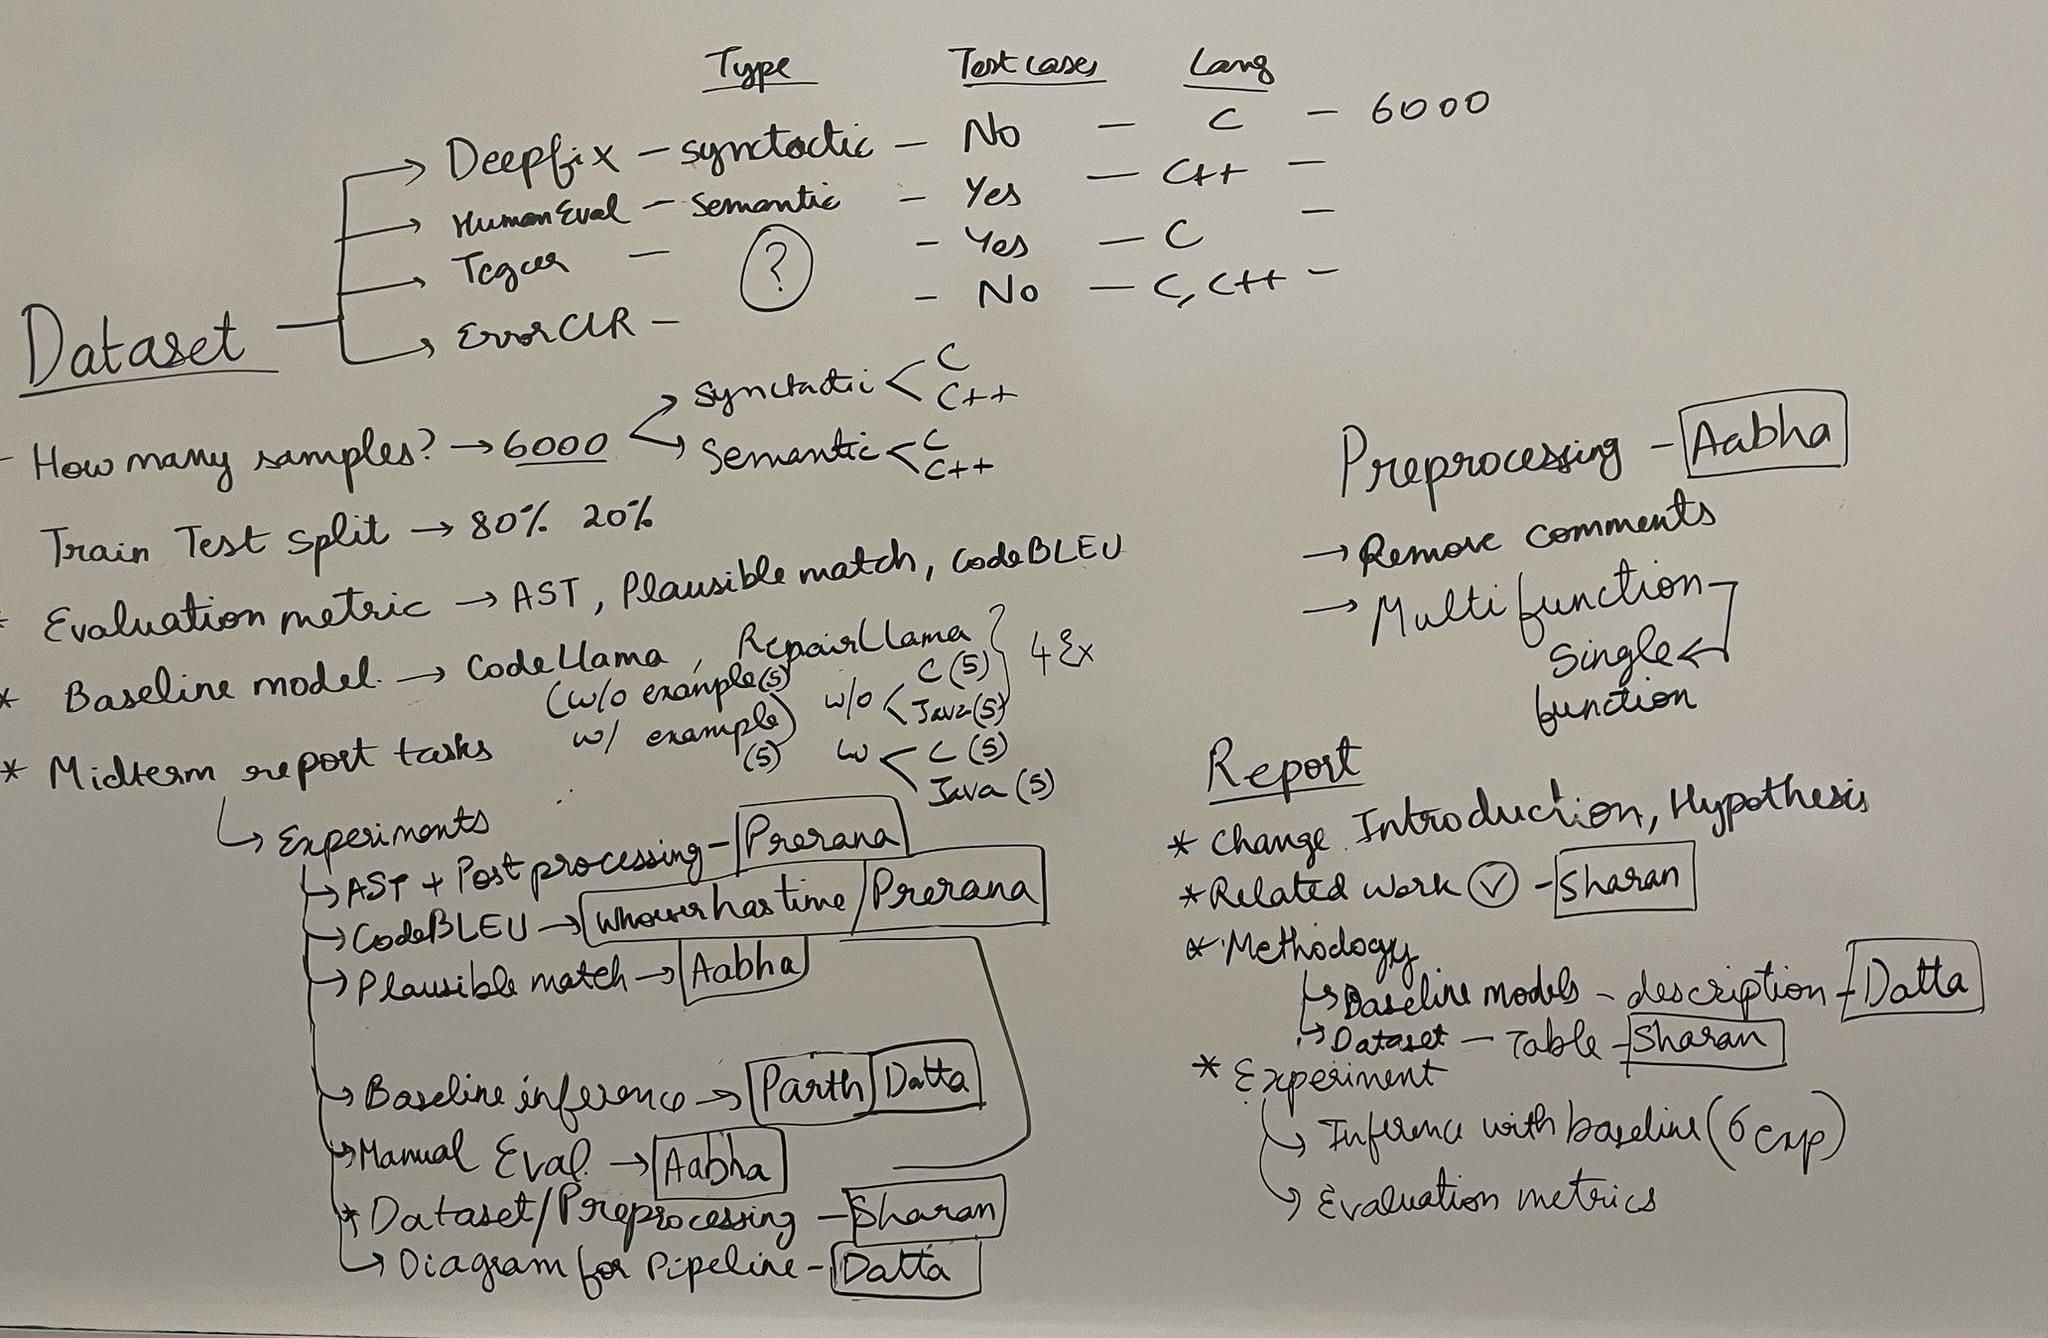 Type Test cases Lang
Deepfix – synctactic – No – C – 6000
HumanEval – Semantic – Yes – C++ –
Tegcer – ? – Yes – C –
ErrorCLR – – No – C, C++ –
Dataset
– How many samples? → 6000
Synctactic < C
C++
Semantic < C
C++
Train Test split → 80% 20%
* Evaluation metric → AST, Plausible match, CodeBLEU
* Baseline model → CodeLlama, RepairLlama } 4 Ex
(w/o example(5)
w/ example)
(5)
w/o < C (5)
Java (5)
w < C (5)
Java (5)
* Midterm report tasks
↳ Experiments
↳ AST + Post processing – Prerana
↳ CodeBLEU → whoever has time / Prerana
↳ Plausible match → Aabha
↳ Baseline inference → Parth Datta
↳ Manual Eval → Aabha
* Dataset/Preprocessing – Sharan
↳ Diagram for Pipeline – Datta
Preprocessing – Aabha
→ Remove comments
→ Multi function
Single
function
Report
* Change Introduction, Hypothesis
* Related work ✓ – Sharan
* Methodogy
↳ Baseline models – description – Datta
↳ Dataset – Table – Sharan
* Experiment
↳ Inference with baseline (6 exp)
↳ Evaluation metrics